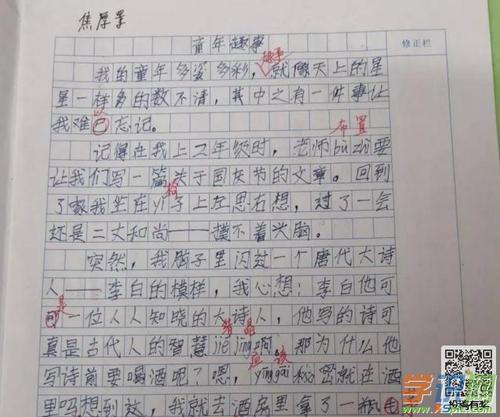 焦厚
修正栏
童年趣事
我的童年多姿多彩，趣事就像天上的星
星一样多的数不清，其中之有一件事让
我难已以忘记。
记得在我上二年级时，老师bù zhì布置要
让我们写一篇关于国庆节的文章。回到
了家我坐在yǐ椅子上左思右想，过了一会
还是二丈和尚——摸不着头脑。
突然，我脑子里闪过一个唐代大诗
人——李白的模样，我心想：李白他可
是一位人人知晓的大诗人，他写的诗可
真是古代人的智慧jié jīng结晶啊，那为什么他
写诗前要喝酒呢？嗯，yīng gāi应该秘密就在酒
里吗想到这，我就去酒房里拿了一瓶